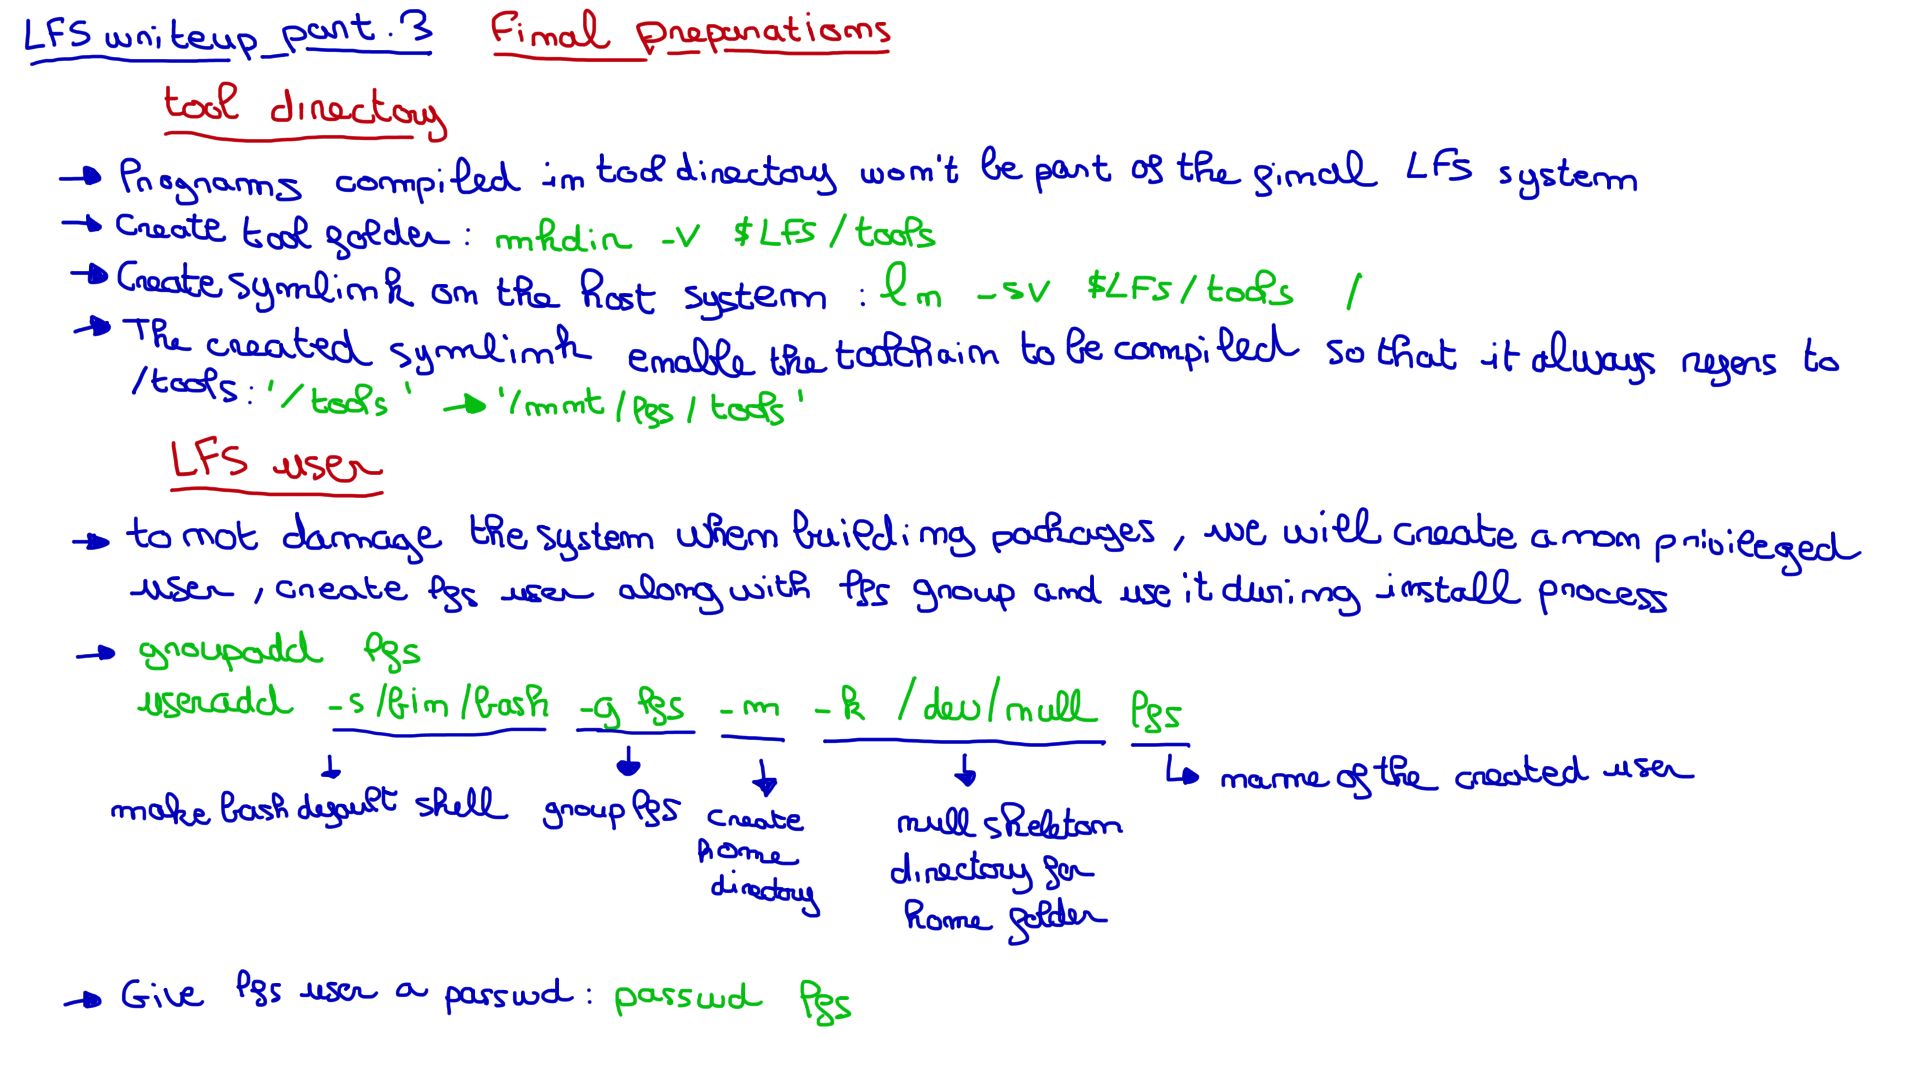 LFS writeup part.3 Final preparations
tool directory
→ Programs compiled in tool directory won't be part of the final LFS system
→ Create tool folder: mkdir -v $LFS/tools
→ Create symlink on the host system : ln -sv $LFS/tools /
→ The created symlink enable the toolchain to be compiled so that it always refers to
/tools: '/tools' → '/mnt/lfs/tools'
LFS user
→ to not damage the system when building packages, we will create a non privileged
user, create lfs user along with lfs group and use it during install process
→ groupadd lfs
useradd -s /bin/bash -g lfs -m -k /dev/null lfs
↳ name of the created user
make bash default shell group lfs create null skeleton
home directory for
directory home folder
→ Give lfs user a passwd: passwd lfs